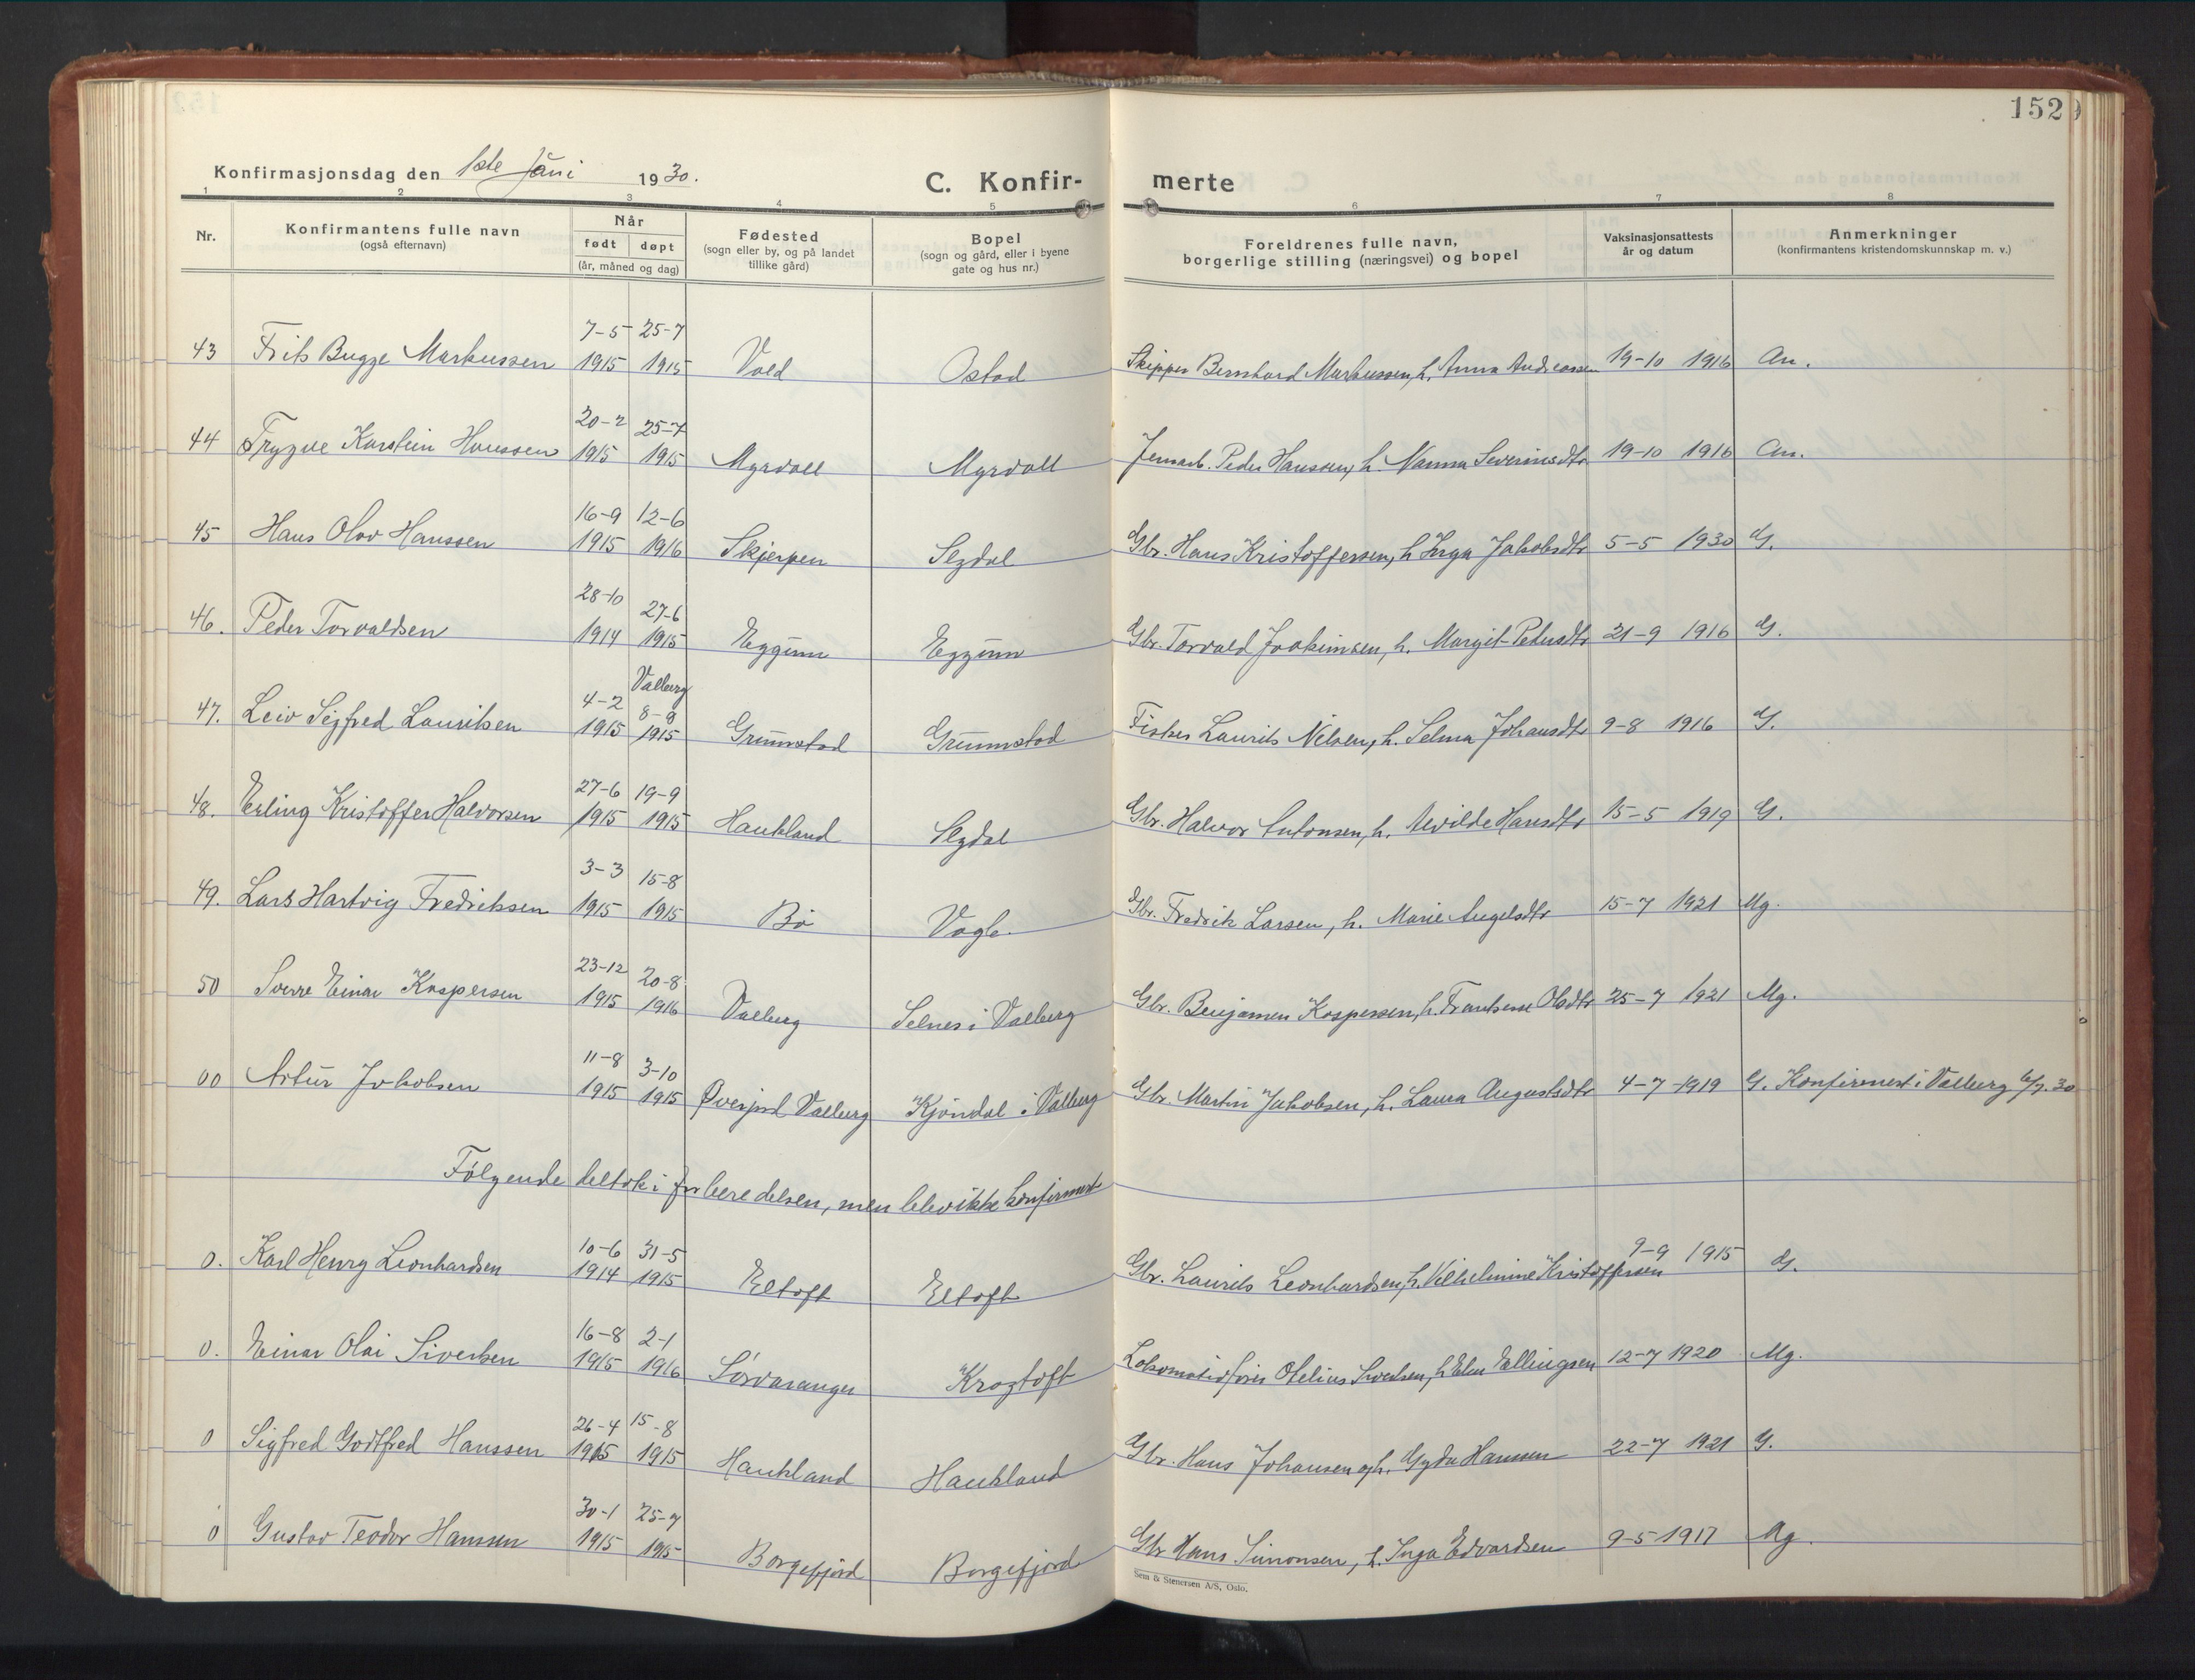 152
Konfirmasjonsdag den 1ste Juni 1930.
C. Konfir- merte
1 2 3 4 5 6 7 8
Nr. Konfirmantens fulle navn (også efternavn) Når født døpt (år, måned og dag) Fødested (sogn eller by, og på landet tillike gård) Bopel (sogn og gård, eller i byene gate og hus nr.) Foreldrenes fulle navn, borgerlige stilling (næringsvei) og bopel Vaksinasjonsattests år og datum Anmerkninger (konfirmantens kristendomskunnskap m. v.)
43 Frits Bugge Markussen 7-5 1915 25-7 1915 Vold Ostad Skipper Bernhard Markussen, h. Anna Andreassen 19-10 1916 An.
44 Trygve Karstein Hanssen 20-2 1915 25-7 1915 Myrvoll Myrvoll Jernarb. Peder Hanssen, h. Nanna Severinsdtr 19-10 1916 An.
45 Hans Olav Hanssen 16-9 1915 12-6 1916 Skjerpen Segdal Gbr. Hans Kristoffersen, h. Inga Jakobsdtr 5-5 1930 G.
46. Peder Torvaldsen 28-10 1914 27-6 1915 Eggum Eggum Gbr. Torvald Joakimsen, h. Margit Pedersdtr 21-9 1916 G.
47. Leiv Sigfred Lauritsen 4-2 1915 Valberg 8-8 1915 Grunnstad Grunnstad Fisker Laurits Nilsen, h. Selma Johansdtr 9-8 1916 G.
48. Erling Kristoffer Halvorsen 27-6 1915 19-9 1915 Haukland Segdal Gbr. Halvor Antonsen, h. Alvilde Hansdtr 15-5 1919 G.
49. Lars Hartvig Fredriksen 3-3 1915 15-8 1915 Bø Vogle Gbr. Fredrik Larsen, h. Marie Angelsdtr 15-7 1921 Mg.
50 Sverre Einar Kaspersen 23-12 1915 20-8 1916 Valberg Selnes i Valberg Gbr. Benjamen Kaspersen, h. Frantsene Olsdtr 25-7 1921 Mg.
00 Artur Jakobsen 11-8 1915 3-10 1915 Øverjord Valberg Kjøndal i Valberg Gbr. Martin Jakobsen, h. Laura Augustsdtr 4-7-1919 G. Konfirmert i Valberg 6/7. 30
Følgende deltok i forberedelsen, men blev ikke konfirmert
0. Karl Henry Leonhardsen 10-6 1914 31-5 1915 Eltoft Eltoft Gbr. Laurits Leonhardsen, h. Vilhelmine Kristoffersen 9-9 1915 G.
0. Einar Olai Sivertsen 16-8 1915 2-1 1916 Sørvaranger Krogtoft Lokomotivfører Otelius Sivertsen, h. Ellingsen 12-7 1920 Mg.
0 Sigfred Godtfred Hanssen 26-4 1915 15-8 1915 Haukland Haukland Gbr. Hans Johansen og h. Gyda Hansen 22-7 1921 G.
0 Gustav Teodor Hanssen 30-1 1915 25-7 1915 Borgefjord Borgefjord Gbr Hans Simonsen, h. Inga Edvardsen 9-5 1917 Mg.
Sem & Stenersen A/S, Oslo.